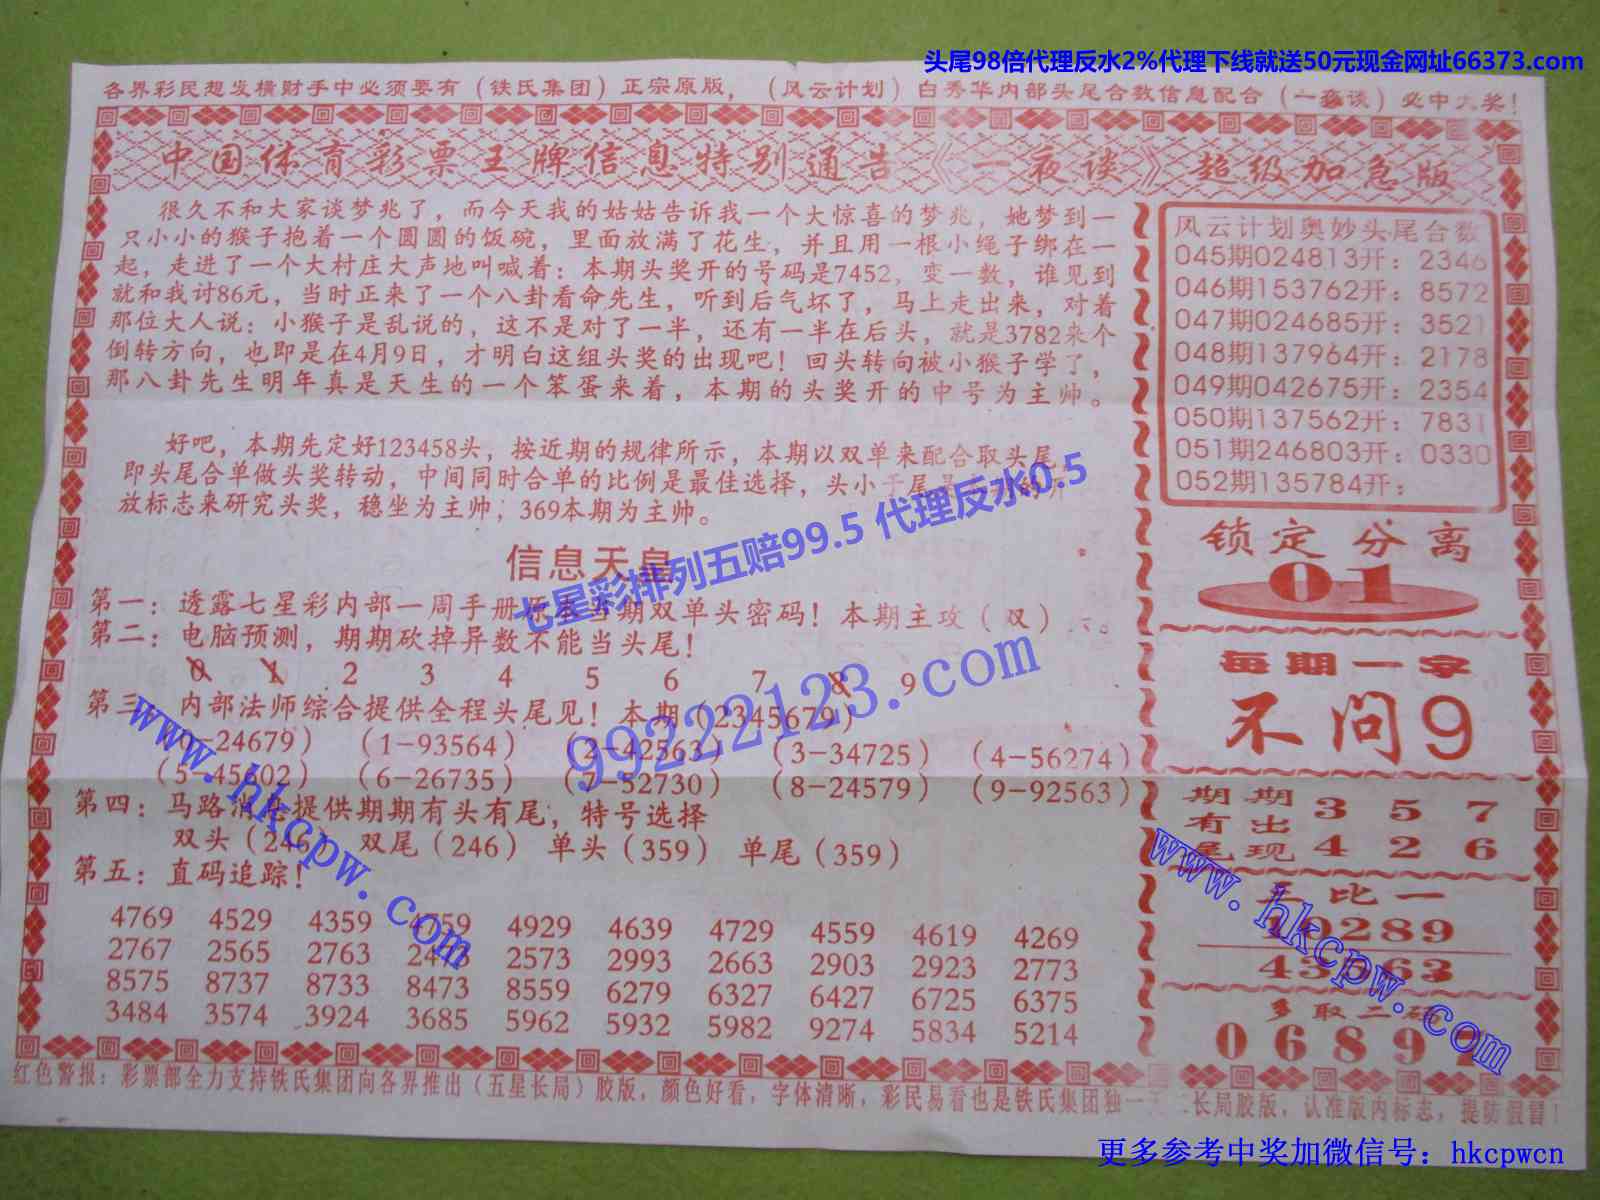 头尾98倍代理反水2%代理下线就送50元现金网址66373.com
各界彩民想发横财手中必须要有（铁氏集团）正宗原版，（风云计划）白秀华内部头尾合数信息配合（一夜谈）必中大奖！
中国体育彩票王牌信息特别通告《一夜谈》超级加急版
很久不和大家谈梦兆了，而今天我的姑姑告诉我一个大惊喜的梦兆，她梦到一
只小小的猴子抱着一个圆圆的饭碗，里面放满了花生，并且用一根小绳子绑在一
起，走进了一个大村庄大声地叫喊着：本期头奖开的号码是7452，变一数，谁见到
就和我讨86元，当时正来了一个八卦看命先生，听到后气坏了，马上走出来，对着
那位大人说：小猴子是乱说的，这不是对了一半，还有一半在后头，就是3782来个
倒转方向，也即是在4月9日，才明白这组头奖的出现吧！回头转向被小猴子学了，
那八卦先生明年真是天生的一个笨蛋来着，本期的头奖开的中号为主帅。
好吧，本期先定好123458头，按近期的规律所示，本期以双单来配合取头尾，
即头尾合单做头奖转动，中间同时合单的比例是最佳选择，头小于尾
放标志来研究头奖，稳坐为主帅；369本期为主帅。
信息天皇
第一：透露七星彩内部一周手册 当期双单头密码！本期主攻（双）
第二：电脑预测，期期砍掉异数不能当头尾！
0 1 2 3 4 5 6 7 8 9
第三：内部法师综合提供全程头尾见！本期（2345679）
（0-24679） （1-93564） （2-42563） （3-34725） （4-56274）
（5-45602） （6-26735） （7-52730） （8-24579） （9-92563）
第四：马路消息提供期期有头有尾，特号选择
双头（246） 双尾（246） 单头（359） 单尾（359）
第五：直码追踪！
4769 4529 4359 4759 4929 4639 4729 4559 4619 4269
2767 2565 2763 2473 2573 2993 2663 2903 2923 2773
8575 8737 8733 8473 8559 6279 6327 6427 6725 6375
3484 3574 3924 3685 5962 5932 5982 9274 5834 5214
风云计划奥妙头尾合数
045期024813开：2346
046期153762开：8572
047期024685开：3521
048期137964开：2178
049期042675开：2354
050期137562开：7831
051期246803开：0330
052期135784开：
锁定分离
01
每期一字
不问9
期期 3 5 7
有出
尾现 4 2 6
比一
289
63
多取二码
0 6 8 9
红色警报：彩票部全力支持铁氏集团向各界推出（五星长局）胶版，颜色好看，字体清晰，彩民易看也是铁氏集团独一 长局胶版，认准版内标志，提防假冒！
七星彩排列五赔99.5 代理反水0.5
99222123.com
www.hkcpw.com
www.hkcpw.com
更多参考中奖加微信号：hkcpwcn